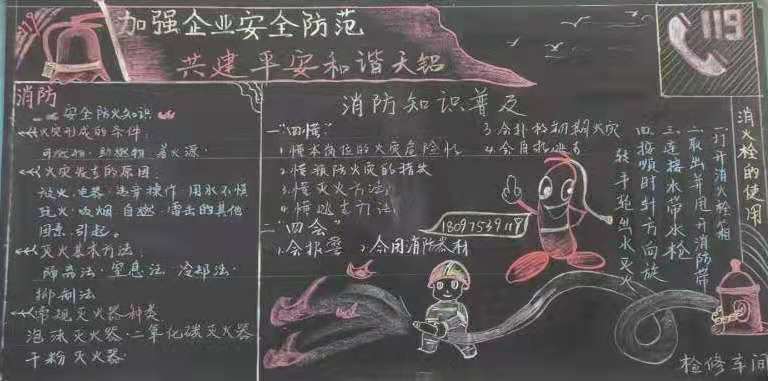 加强企业安全防范
共建平安和谐天铝
119
119
消防
安全防火知识
火灾形成的条件:
可燃物 助燃物 着火源
火灾发生的原因:
放火 电器 违章操作 用火不慎
玩火 吸烟 自燃 雷击的其他
因素引起。
灭火基本方法:
隔离法 窒息法 冷却法
抑制法
常规灭火器种类
泡沫灭火器 二氧化碳灭火器
干粉灭火器
消防知识普及
一"四懂"
1.懂本岗位的火灾危险性
2.懂预防火灾的措失
3.懂灭火方法
4.懂逃生方法
二"四会"
1.会报警 2.会用消防器材
3.会扑救初期火灾
4.会自救逃生
18097539119
消火栓的使用
一.打开消火栓箱
二.取出并甩开消防带
三.连接水带水栓
四.按顺时针方向旋
转手轮出水灭火
检修车间